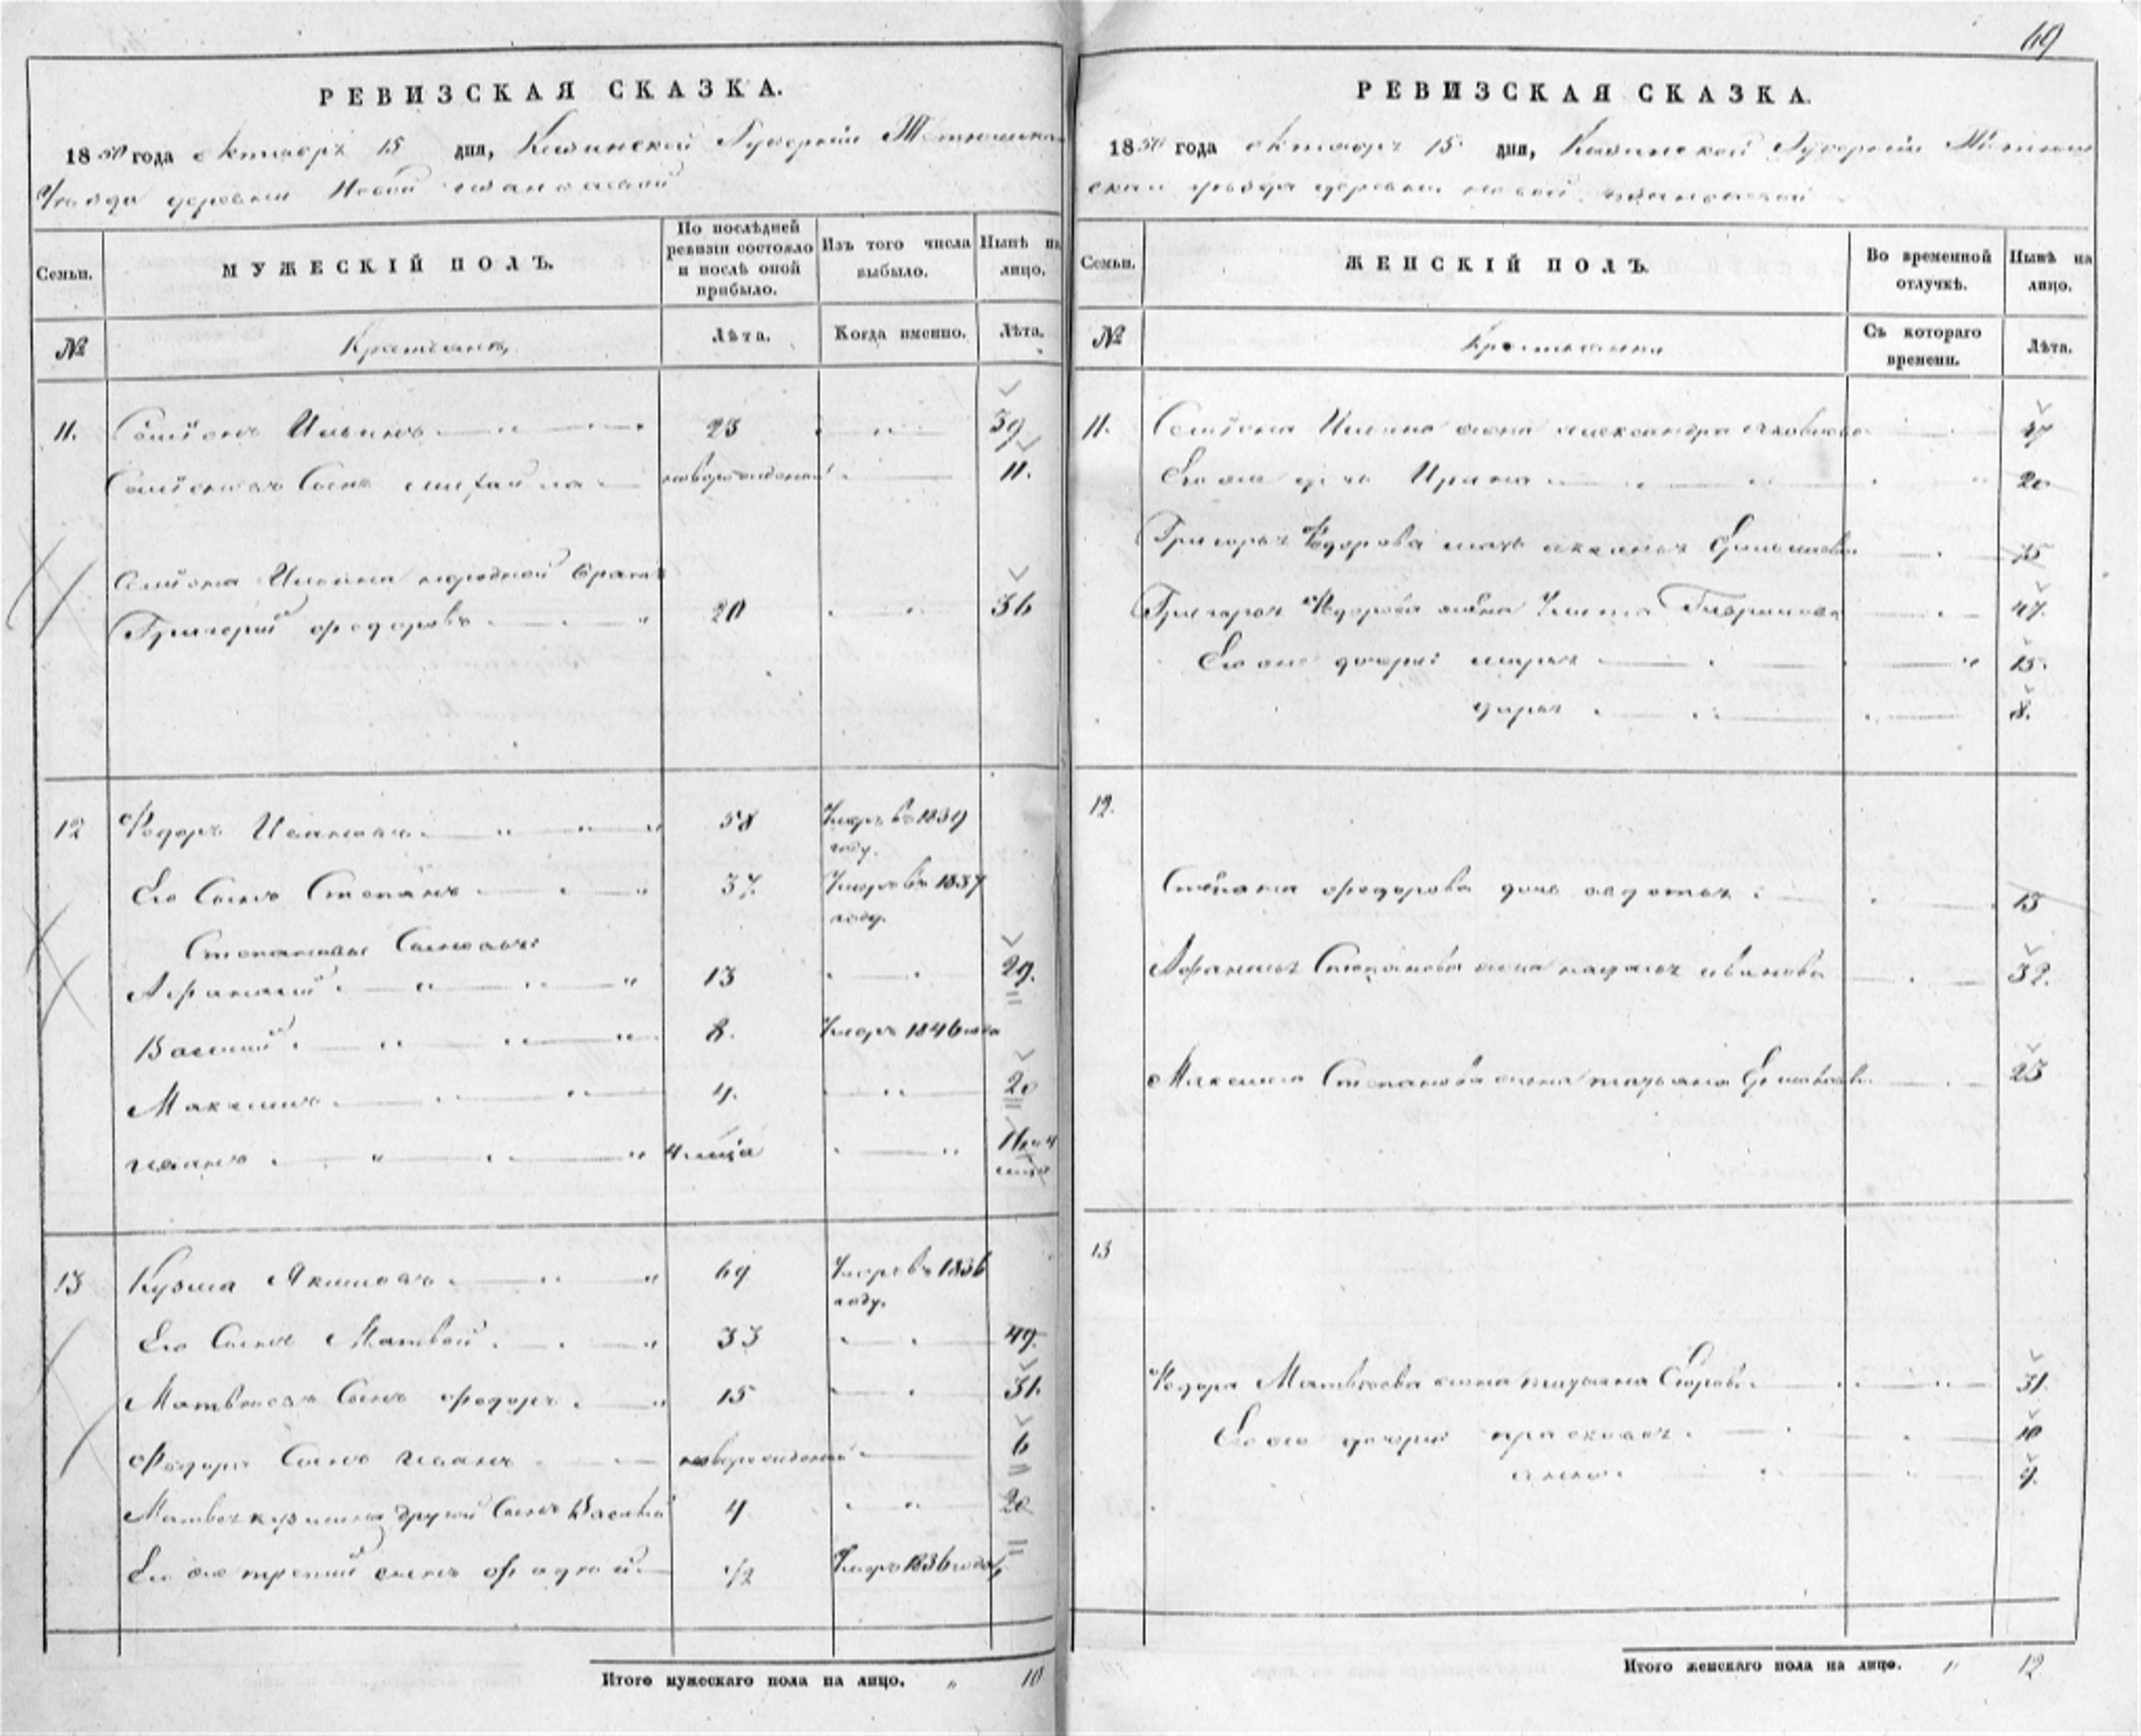 69
РЕВИЗСКАЯ СКАЗКА.
1850 года октября 15 дня, Казанской Губернiи Тетюшскаго
Уѣзда деревни Новой
Семьи. МУЖЕСКІЙ ПОЛЪ. По послѣдней ревизіи состояло и послѣ оной прибыло. Изъ того числа выбыло. Нынѣ на лицо.
№ Крестьянъ Лѣта. Когда именно. Лѣта.
11. Семiонъ Ильинъ 23 39
Семiоновъ Сынъ Михайла новорожденный 11.
Семiона Ильина братъ
Григорiй Федоровъ 20 36
12 Федоръ Ивановъ 58 Умеръ въ 1839
году.
Его Сынъ Степанъ 37. Умеръ въ 1837
году.
Степановы Сыновья:
Афанасiй 13 29.
Василiй 8. Умеръ 1846 года
Максимъ 4. 20
Иванъ 4 мѣсяца
13 Кузма Якимовъ 69 Умеръ въ 1836
году.
Его Сынъ Матвей 33 49.
Матвѣевъ Сынъ Федоръ 15 31.
Федора Сынъ Иванъ новорожденный 6
Матвея Кузмина другой Сынъ Василiй 4 20
Его же третий сынъ Фадей 1/2 Умеръ 1836 года
Итого мужескаго пола на лицо. " 10
РЕВИЗСКАЯ СКАЗКА.
1850 года октября 15 дня, Казанской Губернiи Тетюш
скаго уѣзда деревни новой
Семьи. ЖЕНСКІЙ ПОЛЪ. Во временной отлучкѣ. Нынѣ на лицо.
№ Крестьянки Съ котораго времени. Лѣта.
11. Семiона Ильина жена Александра Яковлева 47
Его же дочь Ирина 20
Григорья Федорова мать 75
Григорья Федорова жена Улита Гаврилова 47.
Его же дочери: Марья 15.
Дарья 8.
12.
Степана Федорова дочь Авдотья 13
Афанасья Степанова жена Наталья Иванова 32.
Максима Степанова жена Татьяна 23
13
Федора Матвѣева жена Татьяна Егорова 31
Его же дочери: Прасковья 10
Анна 9.
Итого женскаго пола на лицо. " 12